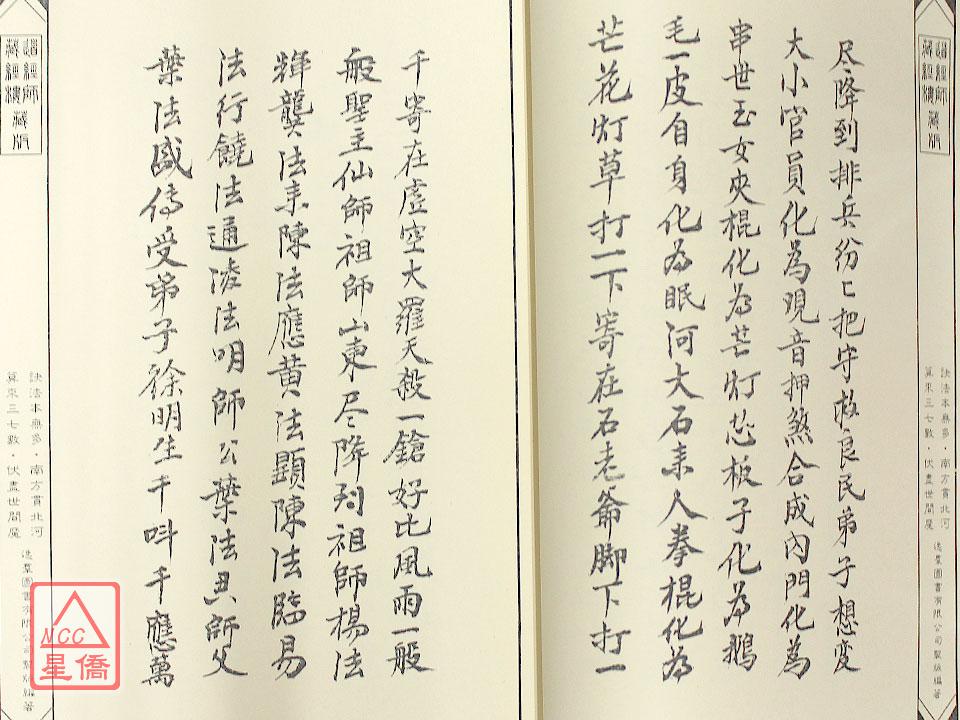 道經師
藏經樓藏版
訣法本無多·南方貫北河
算來三七數·伏盡世間魔
逸群圖書有限公司製版編著
尽降到排兵紛〻把守救良民弟子想变
大小官員化為观音押煞合成內門化為
串世玉女夾棍化為芒灯芯板子化為鵝
毛一皮自身化為眠河大石來人拳棍化為
芒花灯草打一下寄在石老爺脚下打一
千寄在虛空大羅天殺一鎗好比風雨一般
般聖主仙師祖師山東尽降到祖師楊法
輝龔法耒陳法應黃法顕陳法臨易
法行饒法通凌法明師公葉法㒷師父
葉法盛傳受弟子徐明生千叫千應萬
道經師
藏經樓藏版
訣法本無多·南方貫北河
算來三七數·伏盡世間魔
逸群圖書有限公司製版編著
NCC
星僑